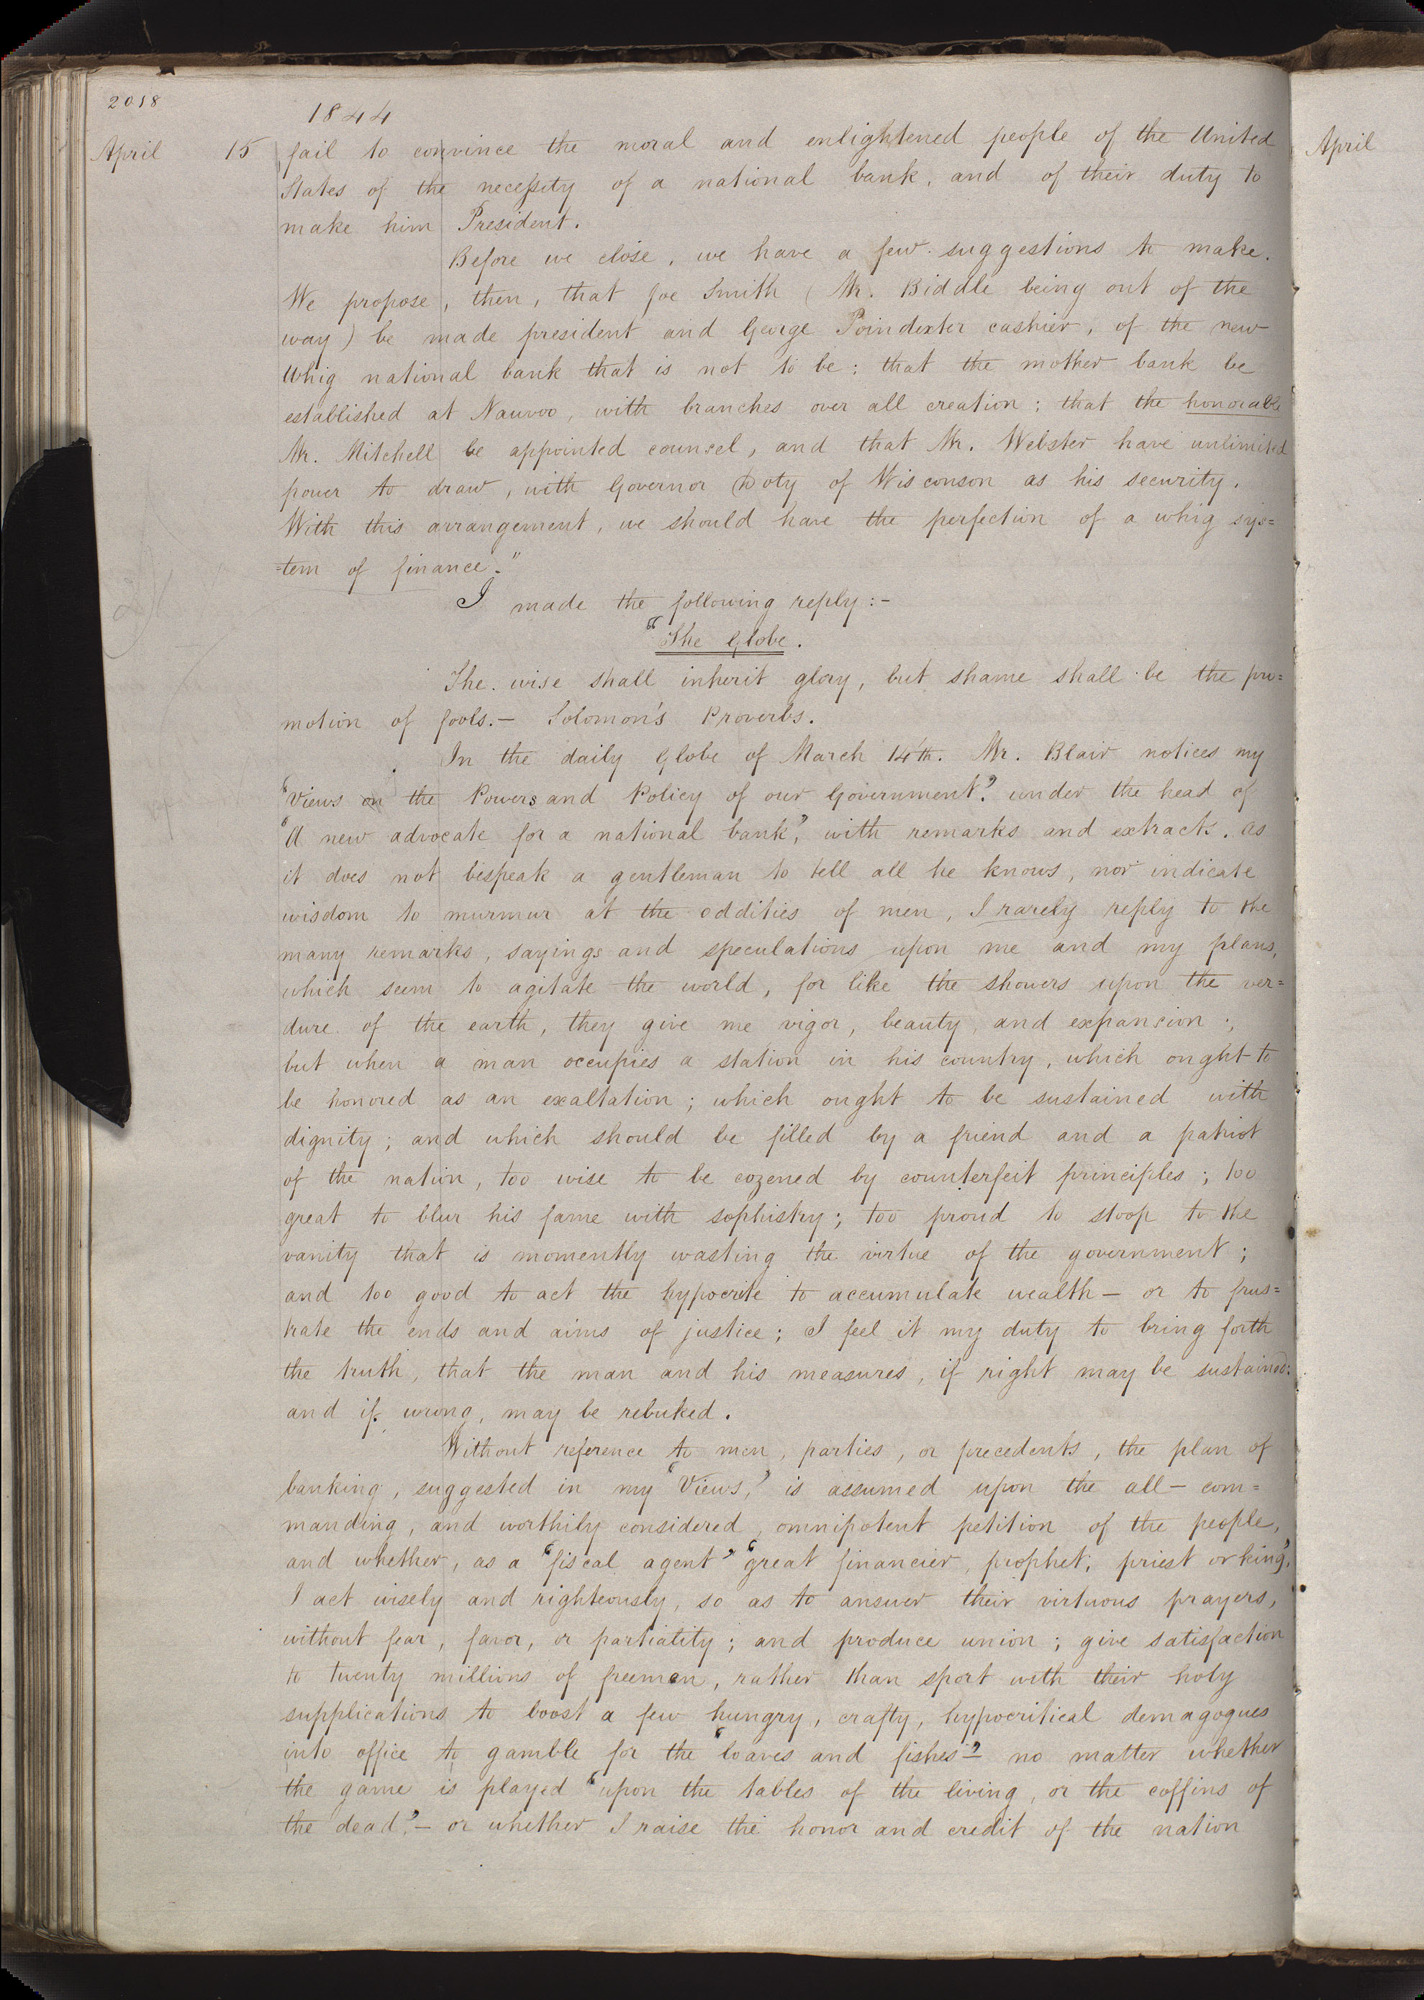 2018
1844
April 15 fail to convince the moral and enlightened people of the United
States of the necessity of a national bank, and of their duty to
make him President.
Before we close, we have a few suggestions to make.
We propose, then, that Joe Smith (Mr. Biddle being out of the
way) be made president and George Poindexter cashier, of the new
Whig national bank that is not to be: that the mother bank be
established at Nauvoo, with branches over all creation; that the honorable
Mr. Mitchell be appointed counsel, and that Mr. Webster have unlimited
power to draw, with Governor Doty of Wisconson as his security.
With this arrangement, we should have the perfection of a whig sys=
=tem of finance."
I made the following reply:-
"The Globe.
The wise shall inherit glory, but shame shall be the pro=
motion of fools.— Solomon's Proverbs.
In the daily Globe of March 14th. Mr. Blair notices my
"Views on the Powers and Policy of our Government", under the head of
"A new advocate for a national bank," with remarks and extracts. As
it does not bespeak a gentleman to tell all he knows, nor indicate
wisdom to murmur at the oddities of men, I rarely reply to the
many remarks, sayings and speculations upon me and my plans,
which seem to agitate the world, for like the showers upon the ver=
dure of the earth, they give me vigor, beauty, and expansion;
but when a man occupies a station in his country, which ought to
be honored as an exaltation; which ought to be sustained with
dignity; and which should be filled by a friend and a patriot
of the nation, too wise to be cozened by counterfeit principles; too
great to blur his fame with sophistry; too proud to stoop to the
vanity that is momently wasting the virtue of the government;
and too good to act the hypocrite to accumulate wealth— or to frus=
trate the ends and aims of justice; I feel it my duty to bring forth
the truth, that the man and his measures, if right may be sustained:
and if wrong, may be rebuked.
Without reference to men, parties, or precedents, the plan of
banking, suggested in my "Views," is assumed upon the all-com=
manding, and worthily considered, omnipotent petition of the people,
and whether, as a "fiscal agent" "great financier, prophet, priest or king",
I act wisely and righteously, so as to answer their virtuous prayers,
without fear, favor, or partiality; and produce union; give satisfaction
to twenty millions of freemen, rather than sport with their holy
supplications to boost a few hungry, crafty, hypocritical demagogues
into office to gamble for the "loaves and fishes"— no matter whether
the game is played "upon the tables of the living, or the coffins of
the dead",— or whether I raise the honor and credit of the nation
April